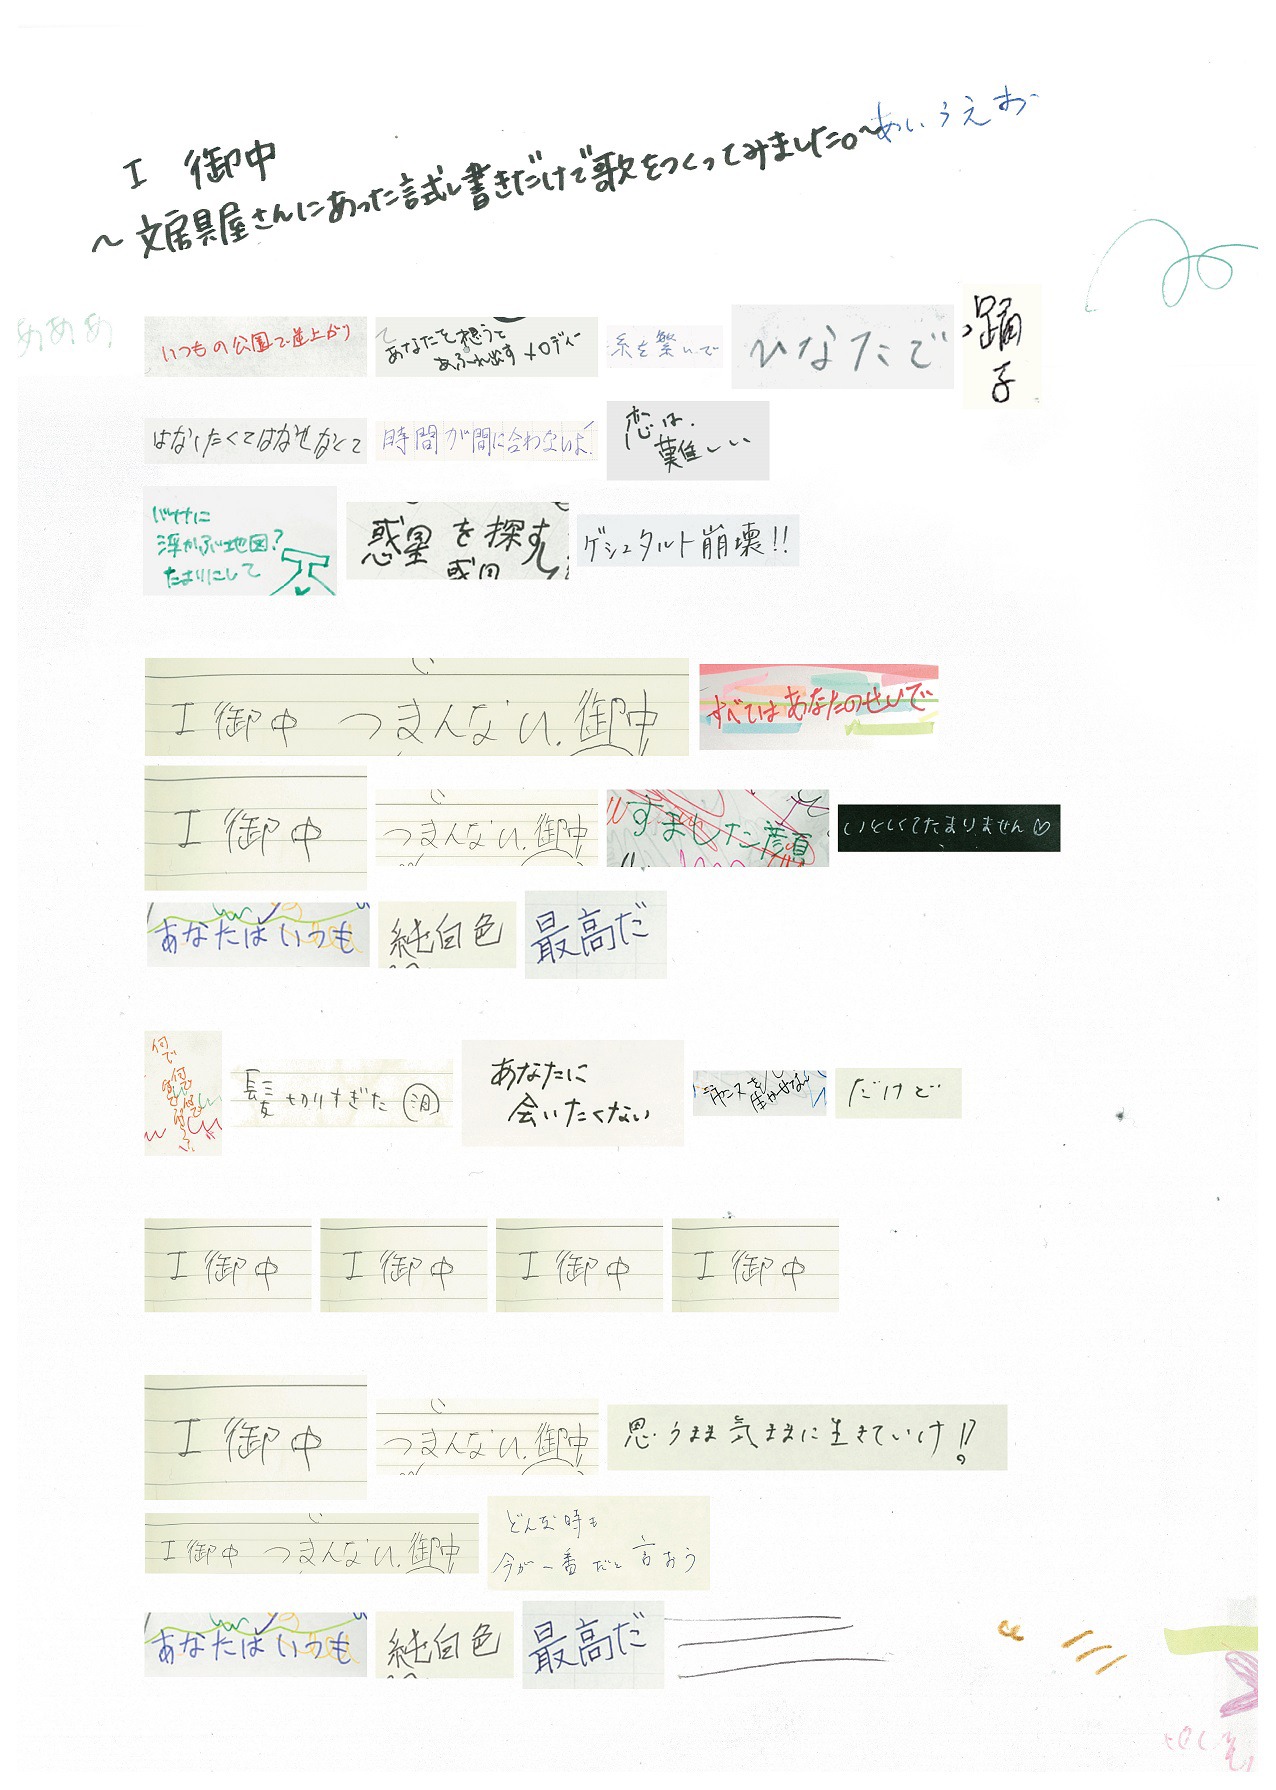 I 御中
～文房具屋さんにあった試し書きだけで歌をつくってみました。～あいうえお
あああ
いつもの公園で逆上がり あなたを想うとあふれ出すメロディー 糸を繋いで ひなたで 踊子
はなしたくてはなせなくて 時間が間に合わないよ! 恋は、難しい
バナナに浮かぶ地図?たよりにして 惑星を探す ゲシュタルト崩壊!!
I 御中 つまんない.御中 すべてはあなたのせいで
I 御中 つまんない.御中 すました顔 いとしくてたまりません♡
あなたはいつも 純白色 最高だ
何で何で 髪切りすぎた あなたに会いたくない だけど
I 御中 I 御中 I 御中 I 御中
I 御中 つまんない.御中 思うまま気ままに生きていけ!?
I 御中 つまんない.御中 どんな時も今が一番だと言おう
あなたはいつも 純白色 最高だ